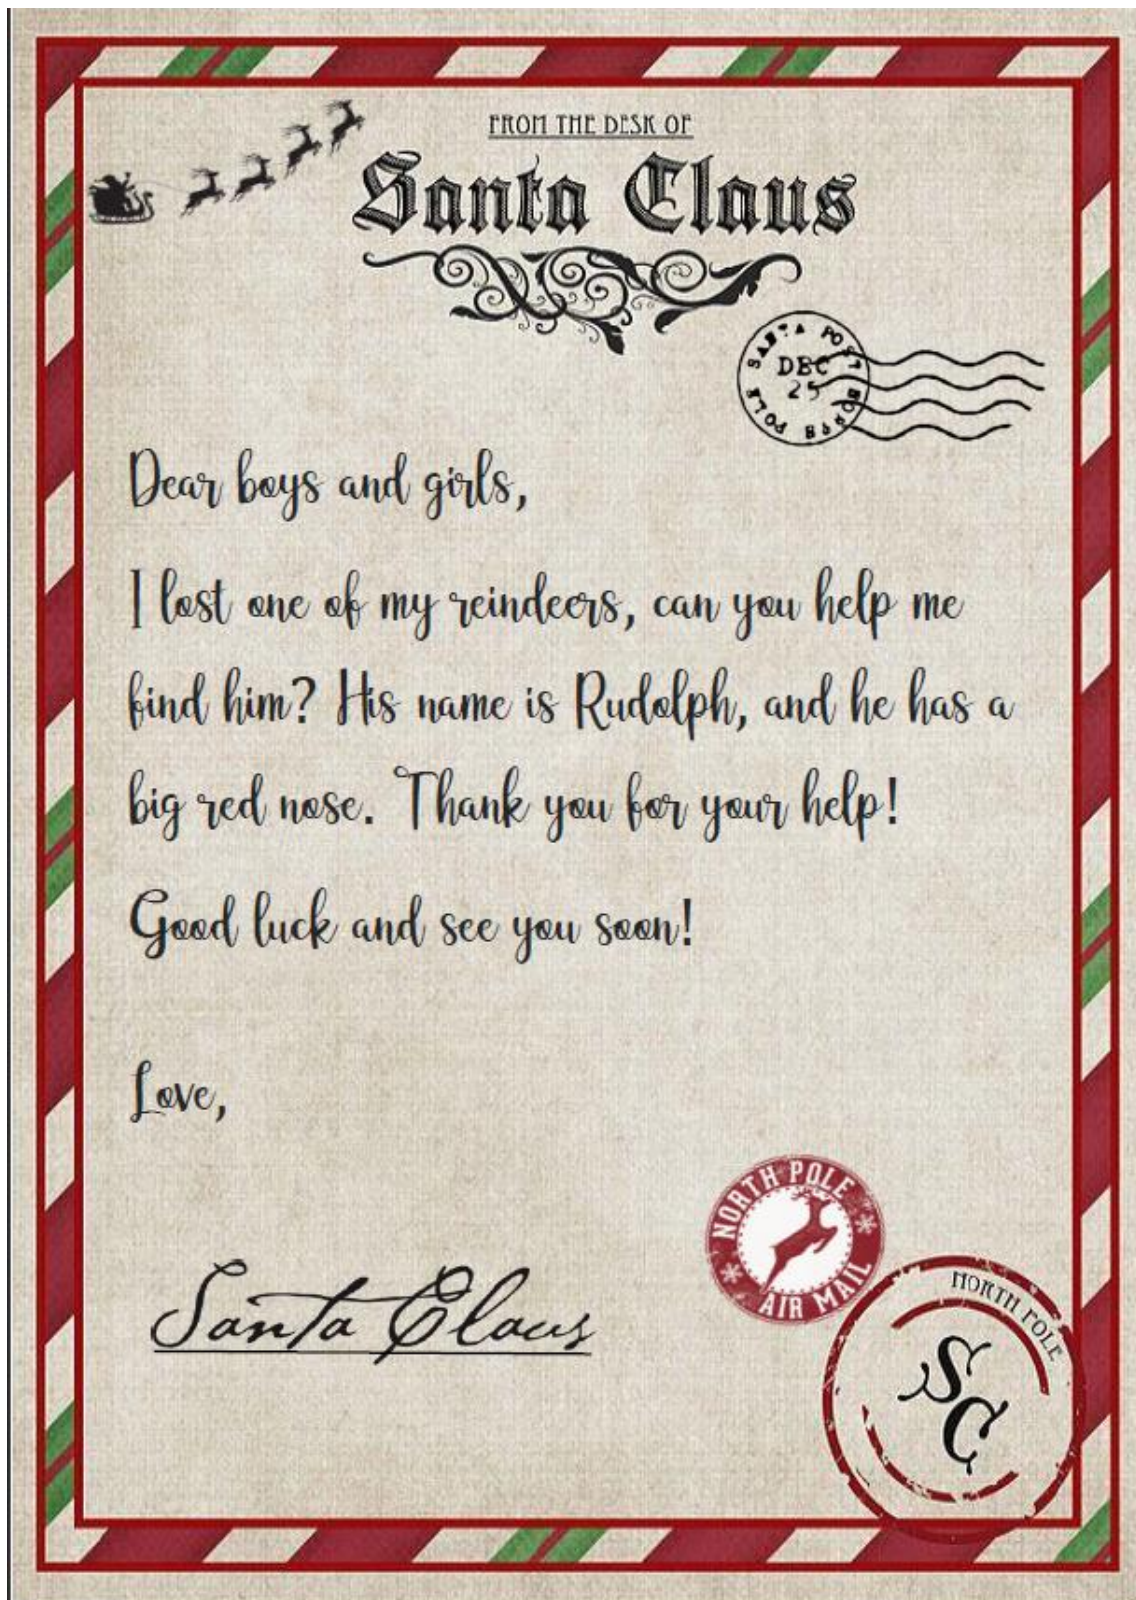 FROM THE DESK OF
Santa Claus
SANTA POST
DEC
25
POLE
Dear boys and girls,
I lost one of my reindeers, can you help me
find him? His name is Rudolph, and he has a
big red nose. Thank you for your help!
Good luck and see you soon!
Love,
NORTH POLE
AIR MAIL
Santa Claus
NORTH POLE
SC